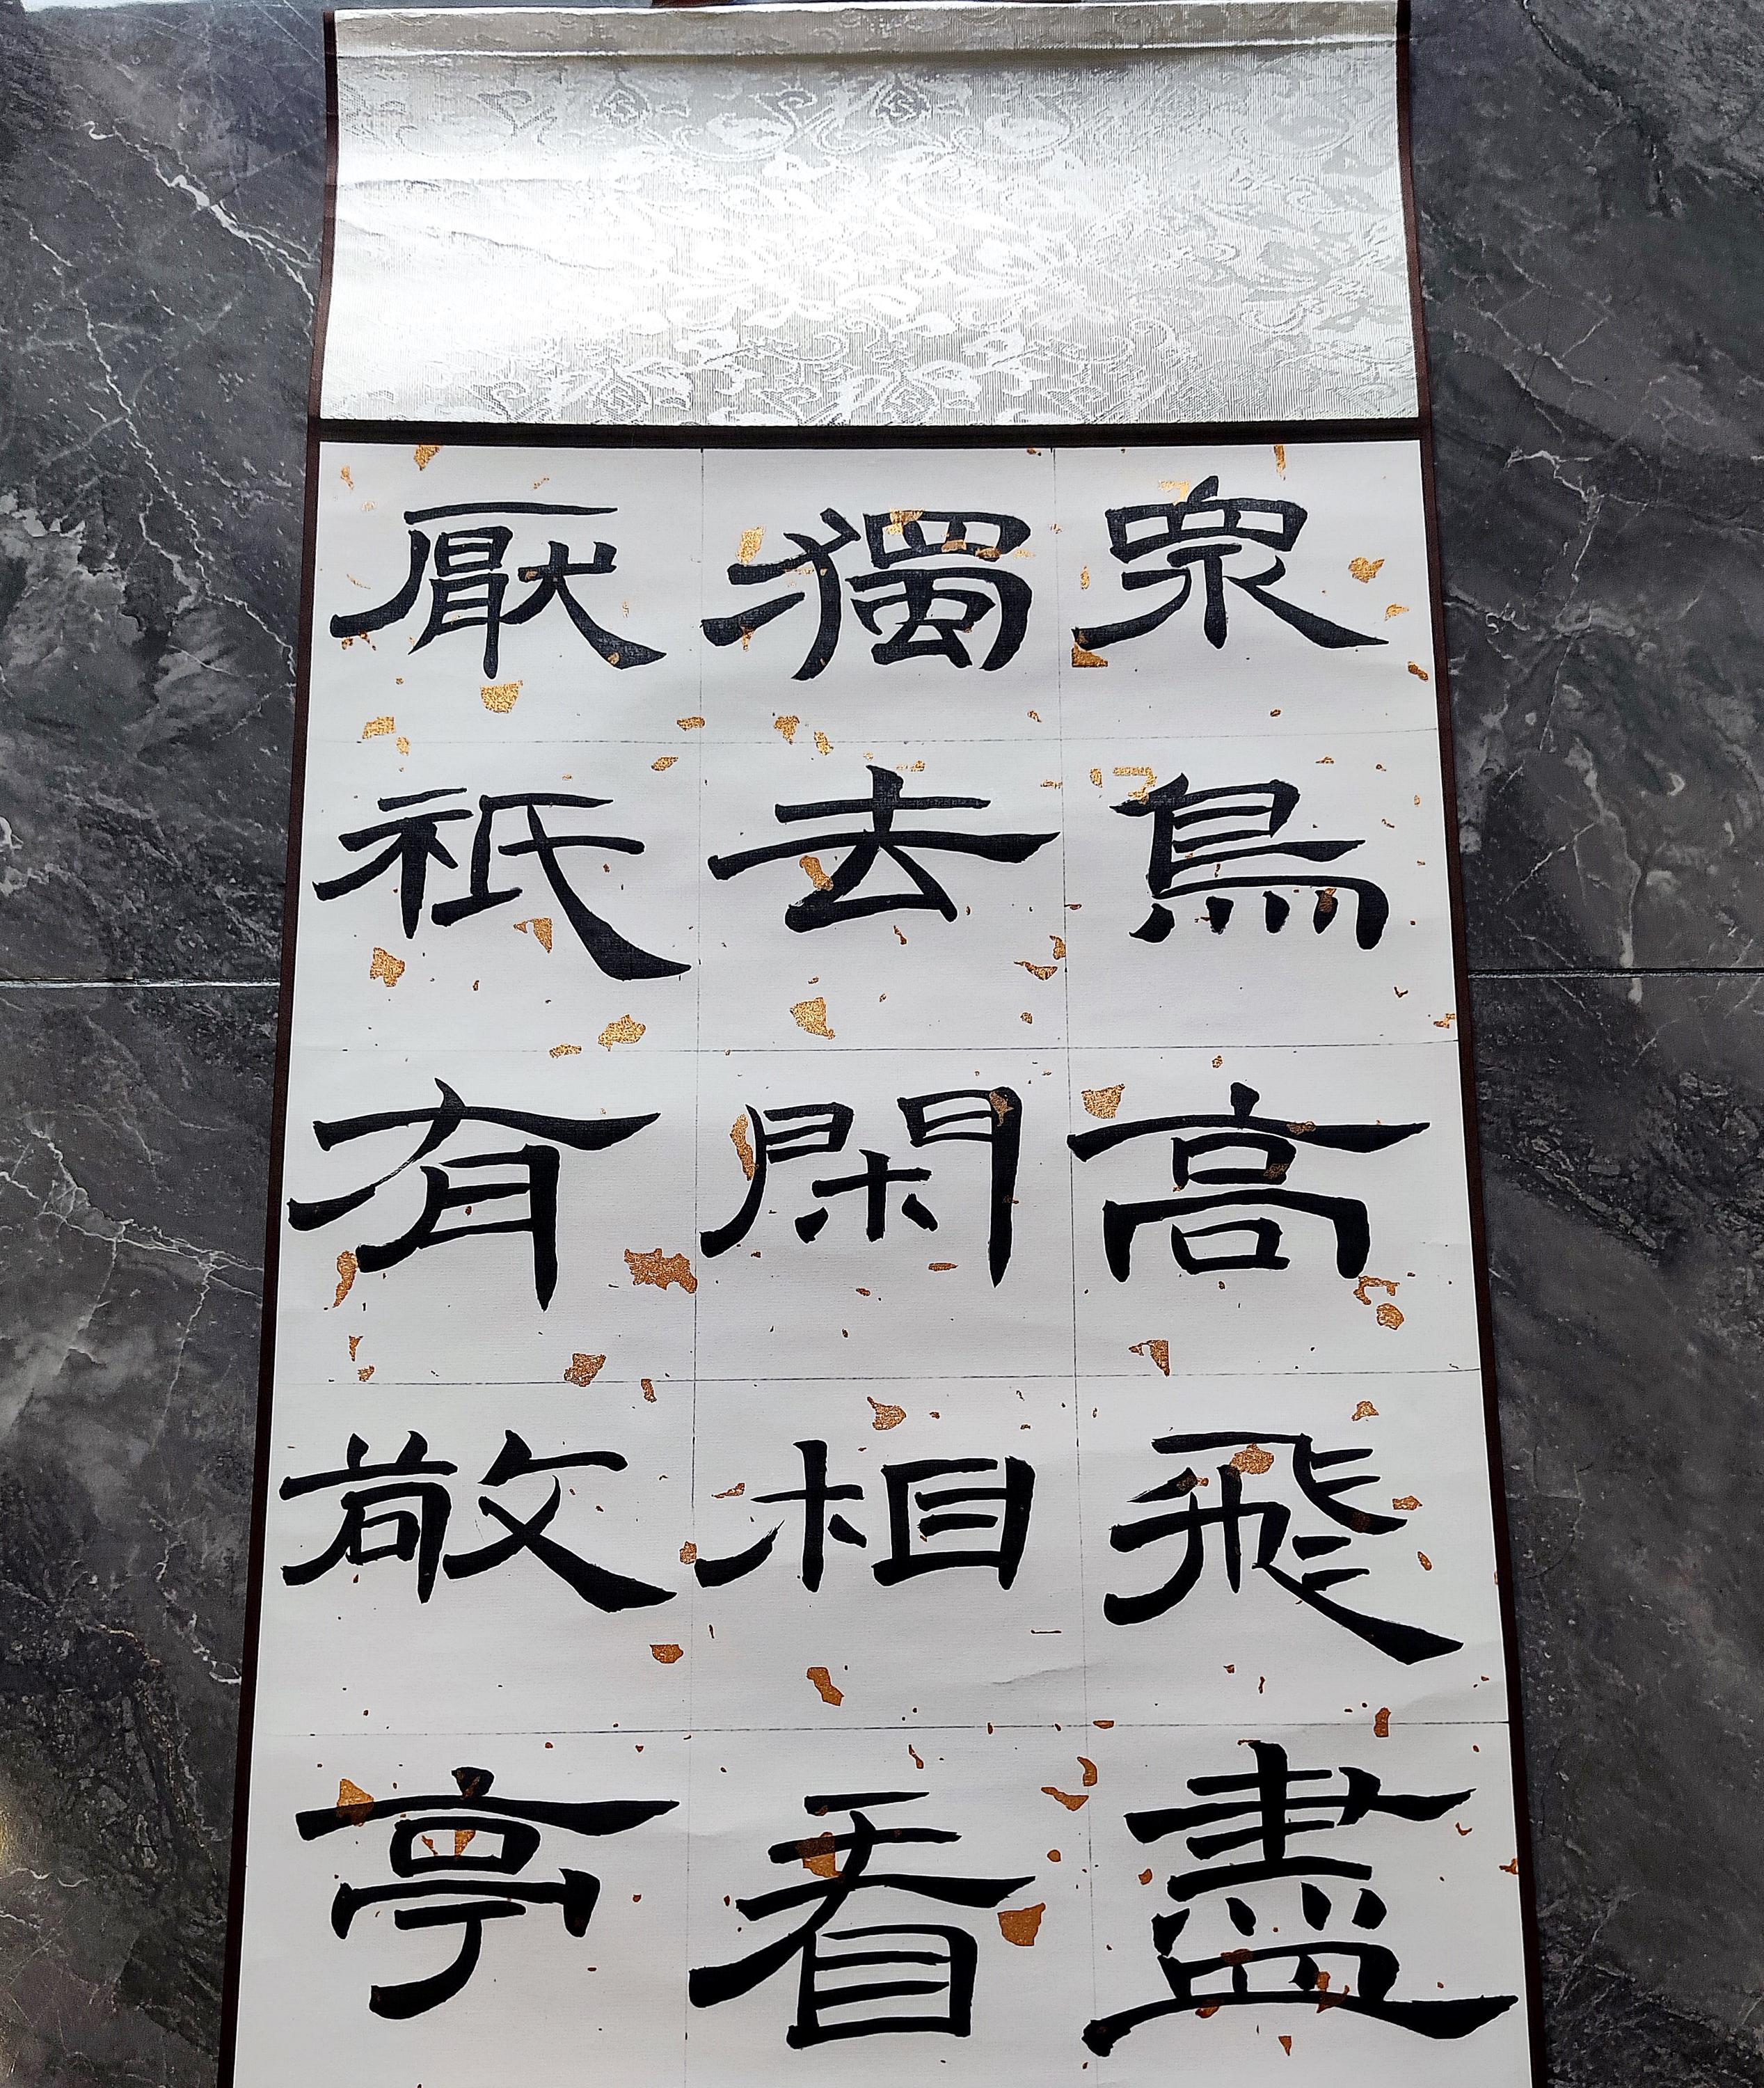 眾鳥高飛盡
獨去閑相看
厭祇有敬亭